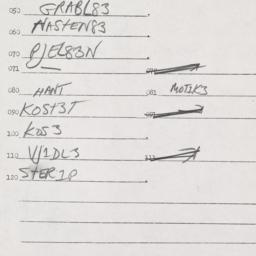 050 GRABL83
060 HASTEN83
070 PJEL83N
071
080 HANT 081 MOTIK3
090 KOST3T 091
100 KOS3
110 VJ1DL3 111
120 STER1P